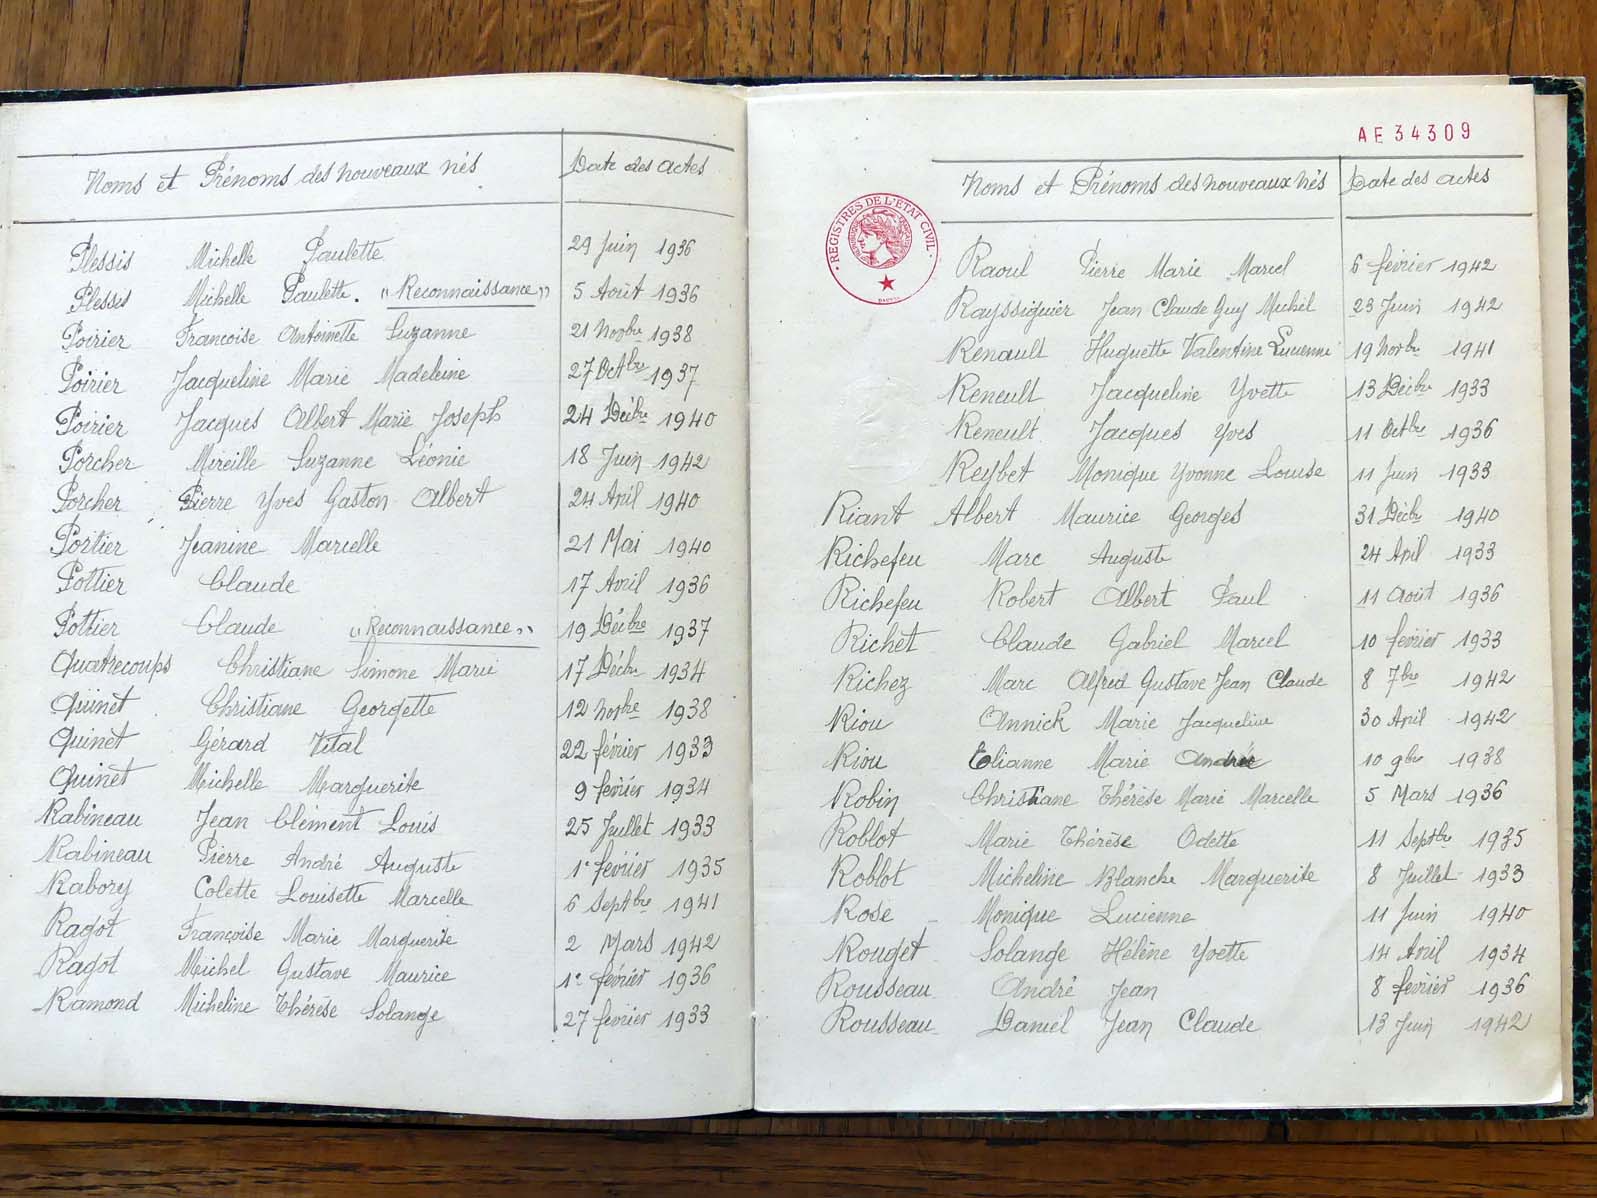 Noms et Prénoms des nouveaux nés Date des actes
Plessis Michelle Paulette 29 Juin 1936
Plessis Michelle Paulette. "Reconnaissance" 5 Août 1936
Poirier Francoise Antoinette Suzanne 21 Novbre 1938
Poirier Jacqueline Marie Madeleine 27 Octbre 1937
Poirier Jacques Albert Marie Joseph 24 Décbre 1940
Porcher Mireille Suzanne Léonie 18 Juin 1942
Porcher Pierre Yves Gaston Albert 24 Avril 1940
Portier Jeanine Marcelle 21 Mai 1940
Pottier Claude 17 Avril 1936
Pottier Claude "Reconnaissance" 19 Décbre 1937
Quatrecoups Christiane Simone Marie 17 Décbre 1934
Quinet Christiane Georgette 12 Novbre 1938
Quinet Gérard Vital 22 février 1933
Quinet Michelle Marguerite 9 février 1934
Rabineau Jean Clément Louis 25 Juillet 1933
Rabineau Pierre André Auguste 1er février 1935
Rabory Colette Louisette Marcelle 6 Septbre 1941
Ragot Françoise Marie Marguerite 2 Mars 1942
Ragot Michel Gustave Maurice 1er février 1936
Ramond Micheline Thérèse Solange 27 février 1933
AE 34309
Noms et Prénoms des nouveaux nés Date des actes
REGISTRES DE L'ETAT CIVIL
Raoul Pierre Marie Marcel 6 février 1942
Rayssiguier Jean Claude Guy Michel 23 Juin 1942
Renault Huguette Valentine Lucienne 19 Novbre 1941
Reneult Jacqueline Yvette 13 Décbre 1933
Reneult Jacques Yves 11 Octbre 1936
Reybet Monique Yvonne Louise 11 Juin 1933
Riant Albert Maurice Georges 31 Décbre 1940
Richefeu Marc Auguste 24 Avril 1933
Richefeu Robert Albert Paul 11 Août 1936
Richet Claude Gabriel Marcel 10 février 1933
Richez Marc Alfred Gustave Jean Claude 8 7bre 1942
Riou Annick Marie Jacqueline 30 Avril 1942
Riou Elianne Marie Andrée 10 9bre 1938
Robin Christiane Thérèse Marie Marcelle 5 Mars 1936
Roblot Marie Thérèse Odette 11 Septbre 1935
Roblot Micheline Blanche Marguerite 8 Juillet 1933
Rose Monique Lucienne 11 Juin 1940
Rouget Solange Hélène Yvette 14 Avril 1934
Rousseau André Jean 8 février 1936
Rousseau Daniel Jean Claude 13 Juin 1942